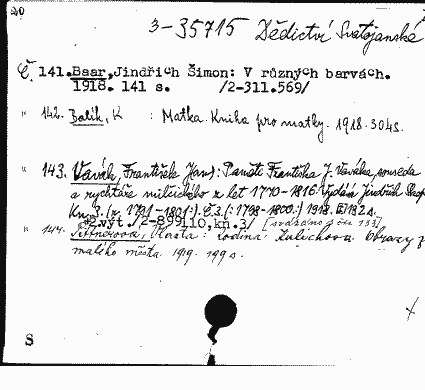 40
3-35715 Dědictví Svatojanské
Č. 141. Baar, Jindřich Šimon: V různých barvách.
1918. 141 s. /2-311.569/
" 142. Balík, K : Matka. Kniha pro matky. 1918. 304 s.
" 143. Vavák, František Jan: Paměti Františka J. Vaváka, souseda
a rychtáře milčického z let 1770-1816. Vydává Jindřich
Kn. 3. (z r. 1791-1801.) Č. 3. (: 1798-1800:) 1918. 132 s.
2. výt. /2-899110, kn. 3/
" 144. Pittnerová, Vlasta: Rodina Obrazy z
malého města. 1919. 199 s.
S